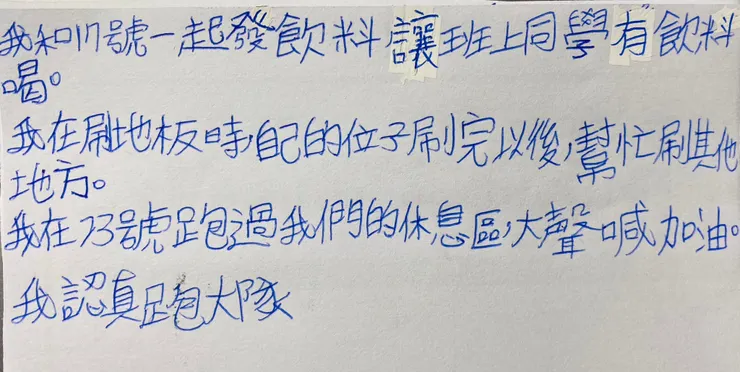 我和17號一起發飲料讓班上同學有飲料
喝。
我在刷地板時,自己的位子刷完以後,幫忙刷其他
地方。
我在23號跑過我們的休息區,大聲喊加油。
我認真跑大隊